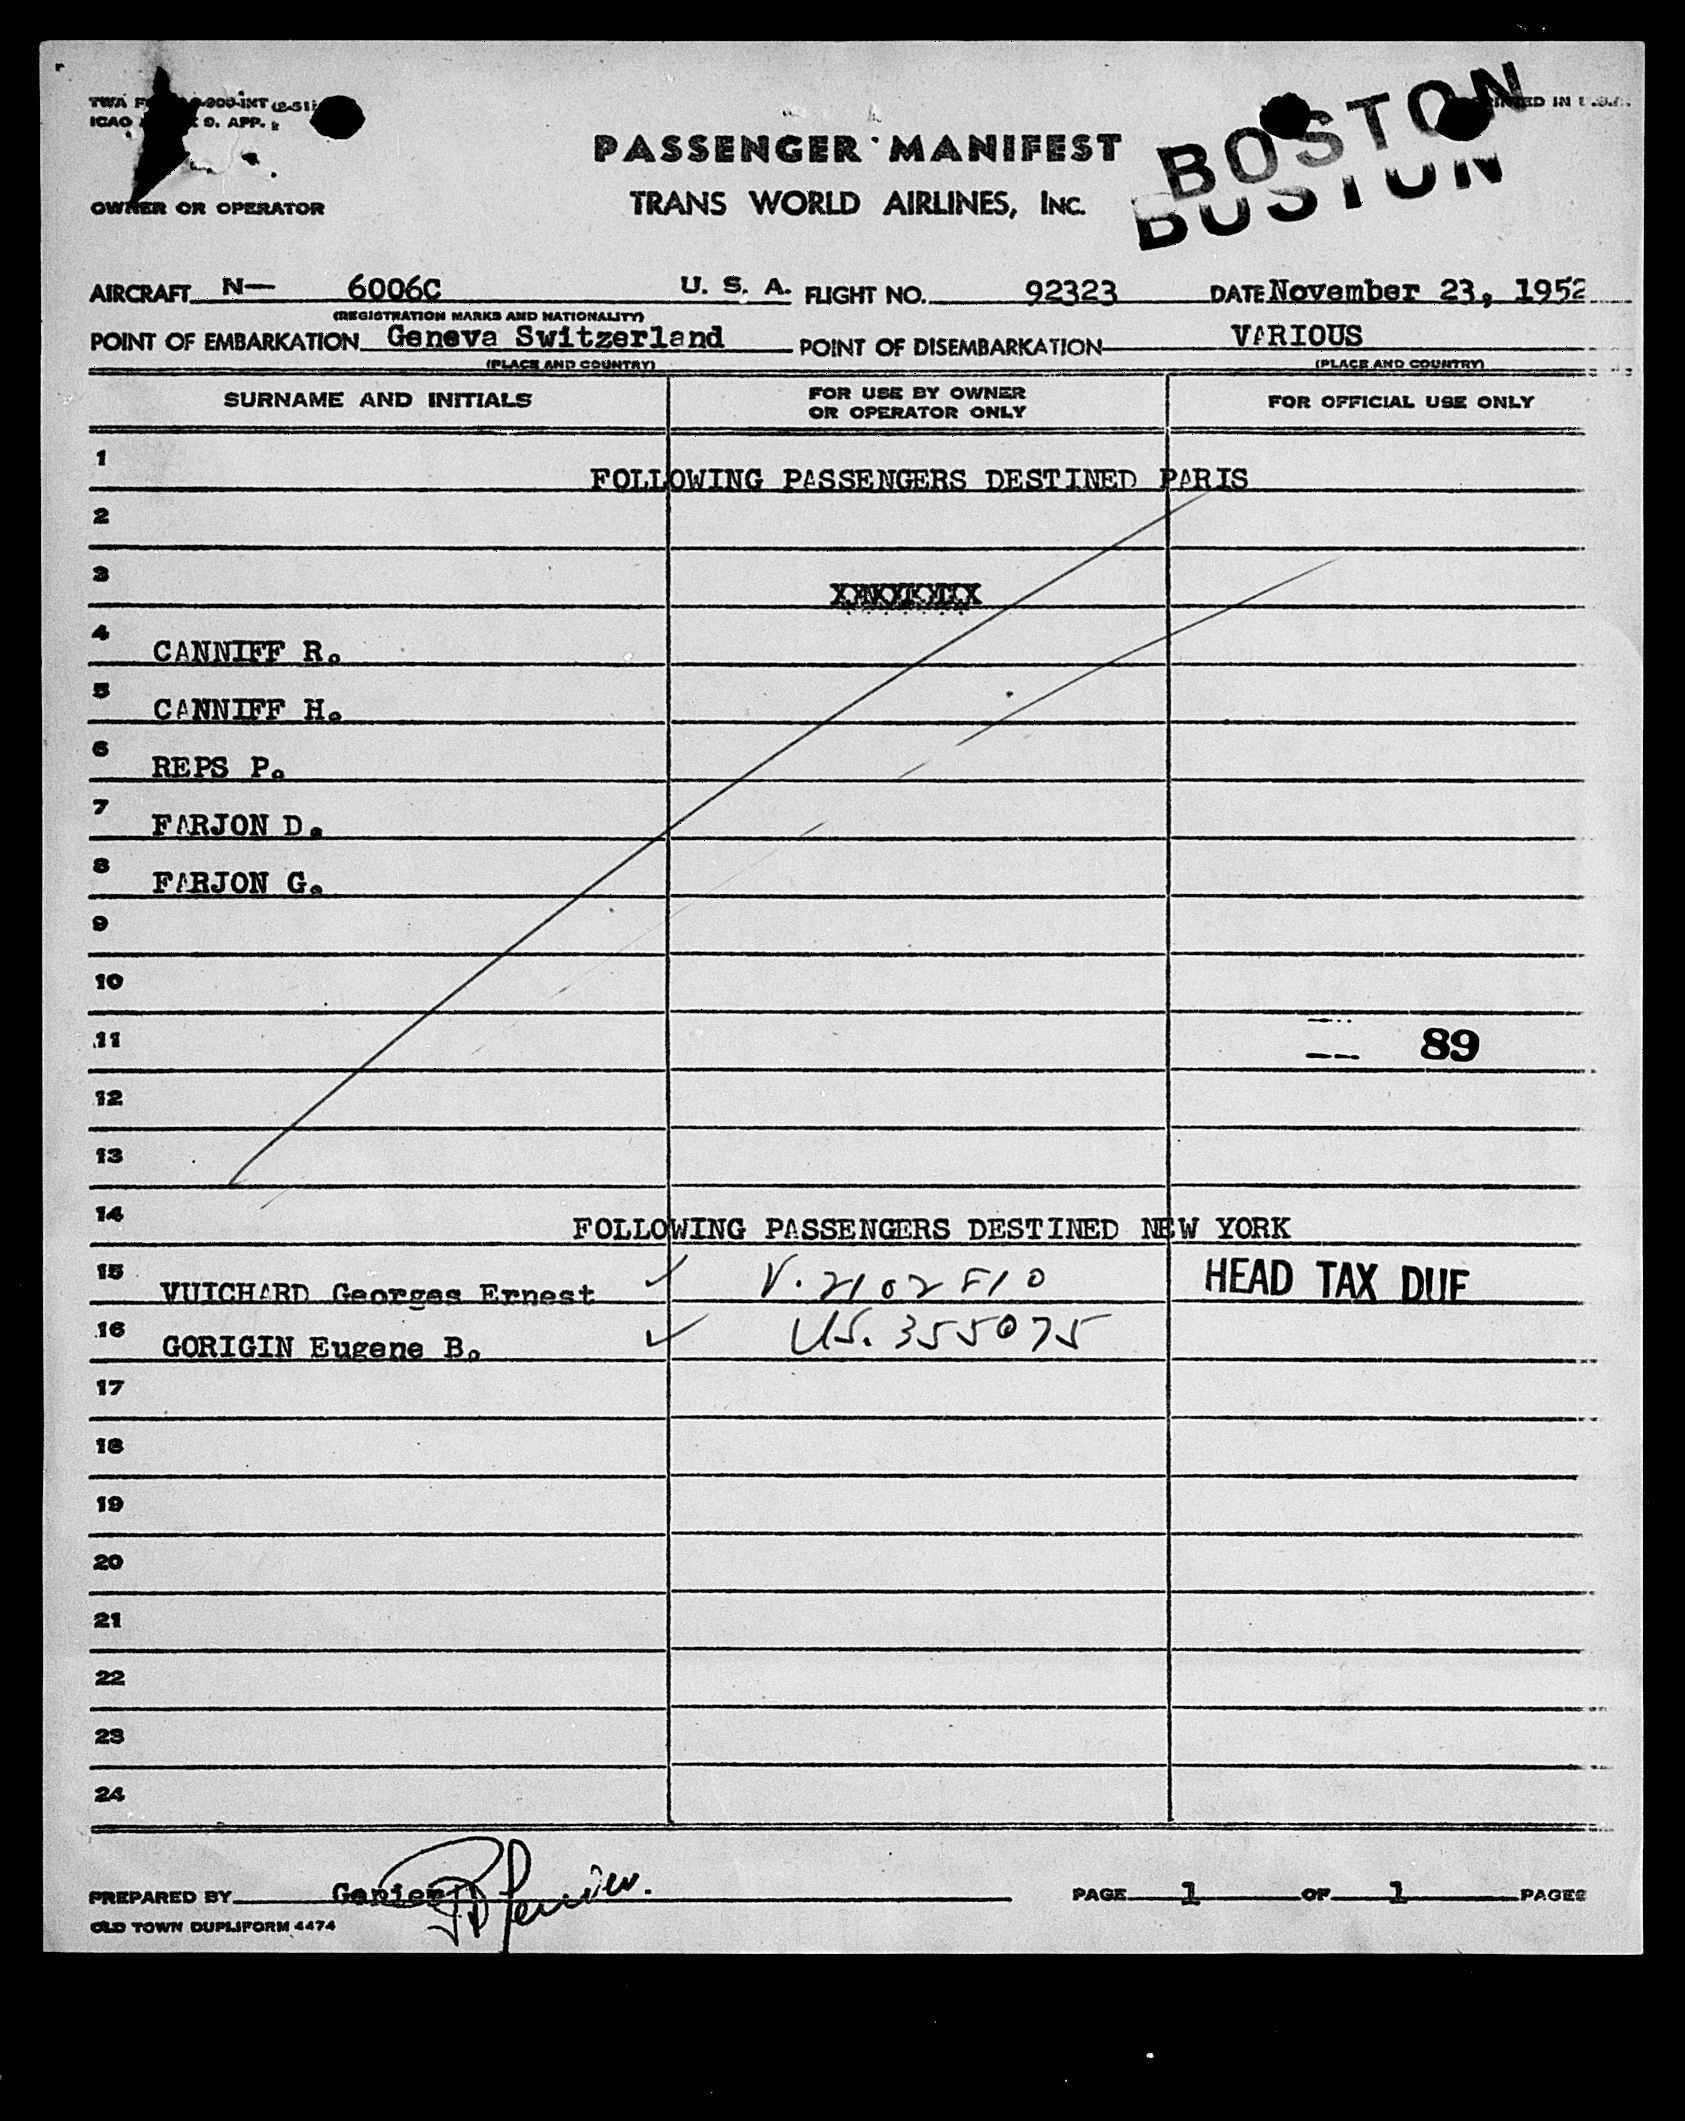 PRINTED IN U.S.A.
ICAO
PASSENGER MANIFEST
BOSTON
BOSTON
TRANS WORLD AIRLINES, INC.
OWNER OR OPERATOR
AIRCRAFT N— 6006C U. S. A. FLIGHT NO. 92323 DATE November 23, 1952
(REGISTRATION MARKS AND NATIONALITY)
POINT OF EMBARKATION Geneva Switzerland POINT OF DISEMBARKATION VARIOUS
(PLACE AND COUNTRY) (PLACE AND COUNTRY)
SURNAME AND INITIALS FOR USE BY OWNER OR OPERATOR ONLY FOR OFFICIAL USE ONLY
1 FOLLOWING PASSENGERS DESTINED PARIS
2
3
4 CANNIFF R.
5 CANNIFF H.
6 REPS P.
7 FARJON D.
8 FARJON G.
9
10
11 89
12
13
14 FOLLOWING PASSENGERS DESTINED NEW YORK
15 VUICHARD Georges Ernest V. 2102510 HEAD TAX DUE
16 GORIGIN Eugene B. US. 355075
17
18
19
20
21
22
23
24
PREPARED BY Genier PAGE 1 OF 1 PAGES
OLD TOWN DUPLIFORM 4474